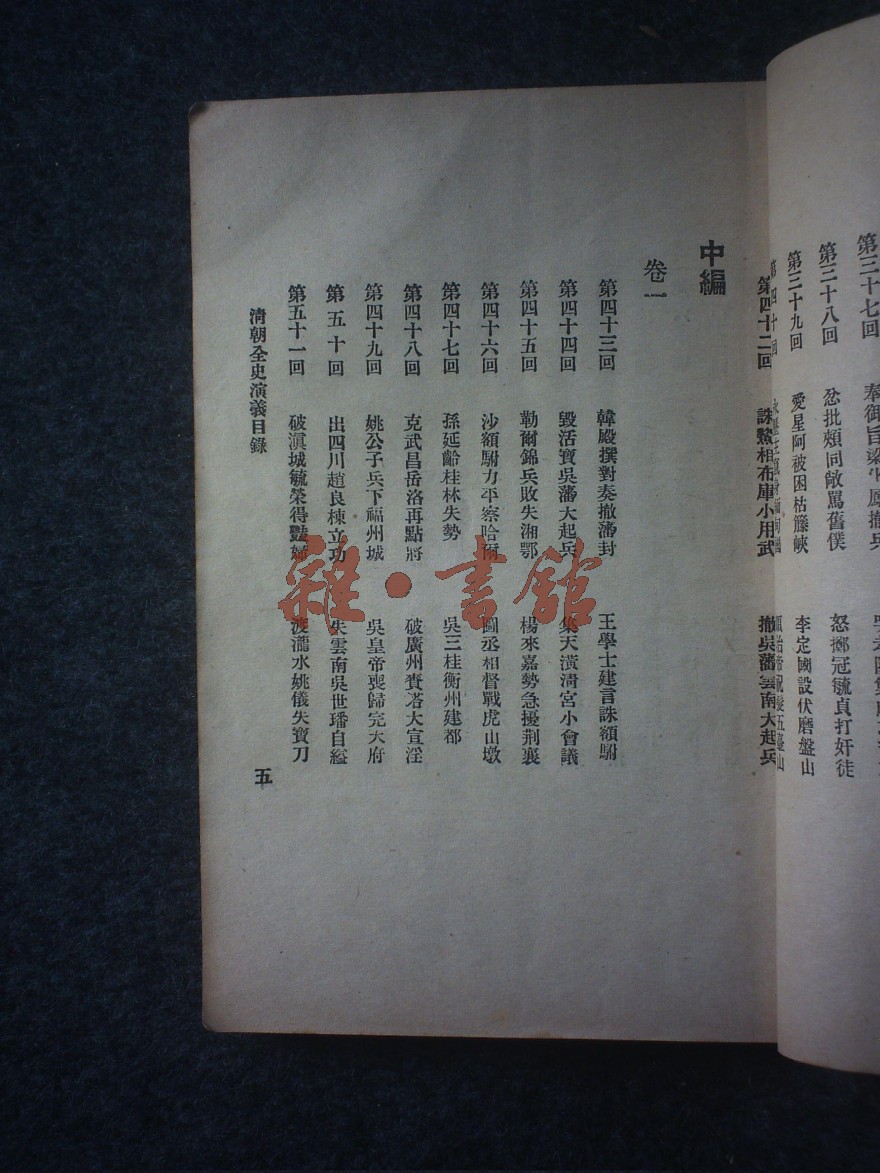 第三十七回　奉御旨梁
第三十八回　忿批頰同敞罵舊僕　怒擲冠毓貞打奸徒
第三十九回　愛星阿被困枯籐峽　李定國設伏磨盤山
第四十回
第四十二回　誅鰲相布庫小用武　撤吳藩雲南大起兵
中編
卷一
第四十三回　韓殿撰對奏撤藩封　王學士建言誅額駙
第四十四回　毀活寶吳藩大起兵　集天潢清宮小會議
第四十五回　勒爾錦兵敗失湘鄂　楊來嘉勢急擾荆襄
第四十六回　沙額駙力平察哈爾　圖丞相督戰虎山墩
第四十七回　孫延齡桂林失勢　吳三桂衡州建都
第四十八回　克武昌岳洛再點將　破廣州賚塔大宣淫
第四十九回　姚公子兵下福州城　吳皇帝喪歸完大府
第五十回　出四川趙良棟立功　失雲南吳世璠自縊
第五十一回　破滇城毓榮得豔婦　渡瀧水姚儀失寶刀
清朝全史演義目錄
五
雜·書館